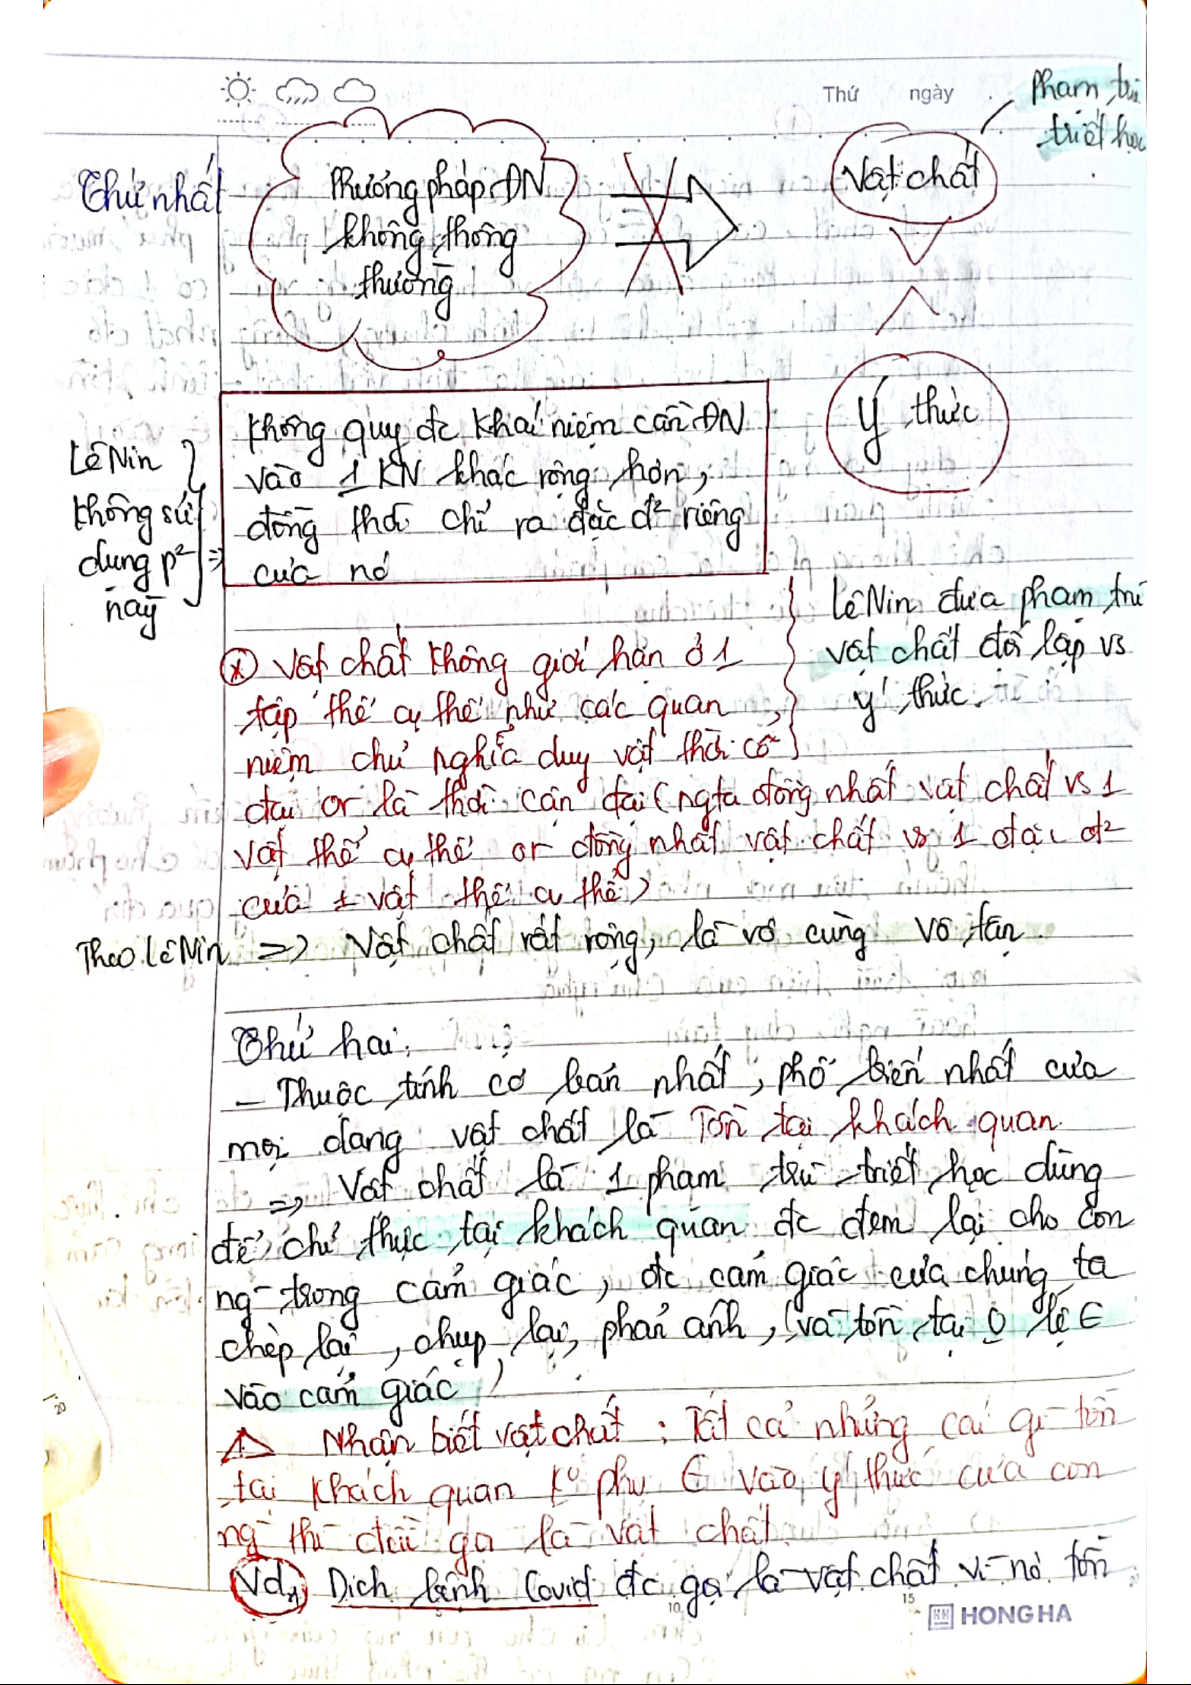 Thứ ngày
Phạm trù
triết học
Thứ nhất
Phương pháp ĐN
không thông
thường
Vật chất
Ý thức
LêNin
không sử
dụng p²
này
=>
Không quy đc khái niệm cần ĐN
vào 1 KN khác rộng hơn,
đồng thời chỉ ra đặc đ² riêng
của nó
LêNin đưa phạm trù
vật chất đối lập vs
ý thức.
(*) Vật chất không giới hạn ở 1
tập thể cụ thể như các quan
niệm chủ nghĩa duy vật thời cổ
đại or là thời cận đại (ngta đồng nhất vật chất vs 1
vật thể cụ thể or đồng nhất vật chất vs 1 đặc đ²
của 1 vật thể cụ thể)
Theo LêNin => Vật chất rất rộng, là vô cùng vô tận.
Thứ hai:
- Thuộc tính cơ bản nhất, phổ biến nhất của
mọi dạng vật chất là Tồn tại khách quan.
=> Vật chất là 1 phạm trù triết học dùng
để chỉ thực tại khách quan đc đem lại cho con
ng` trong cảm giác, đc cảm giác của chúng ta
chép lại, chụp lại, phản ánh, (và tồn tại 0 lệ ∈
vào cảm giác)
Nhận biết vật chất: Tất cả những cái gì tồn
tại khách quan k° phụ ∈ vào ý thức của con
ng` thì đều gọi là vật chất
Vd1 Dịch bệnh Covid đc gọi là vật chất vì nó tồn
10 15
HONG HA
20